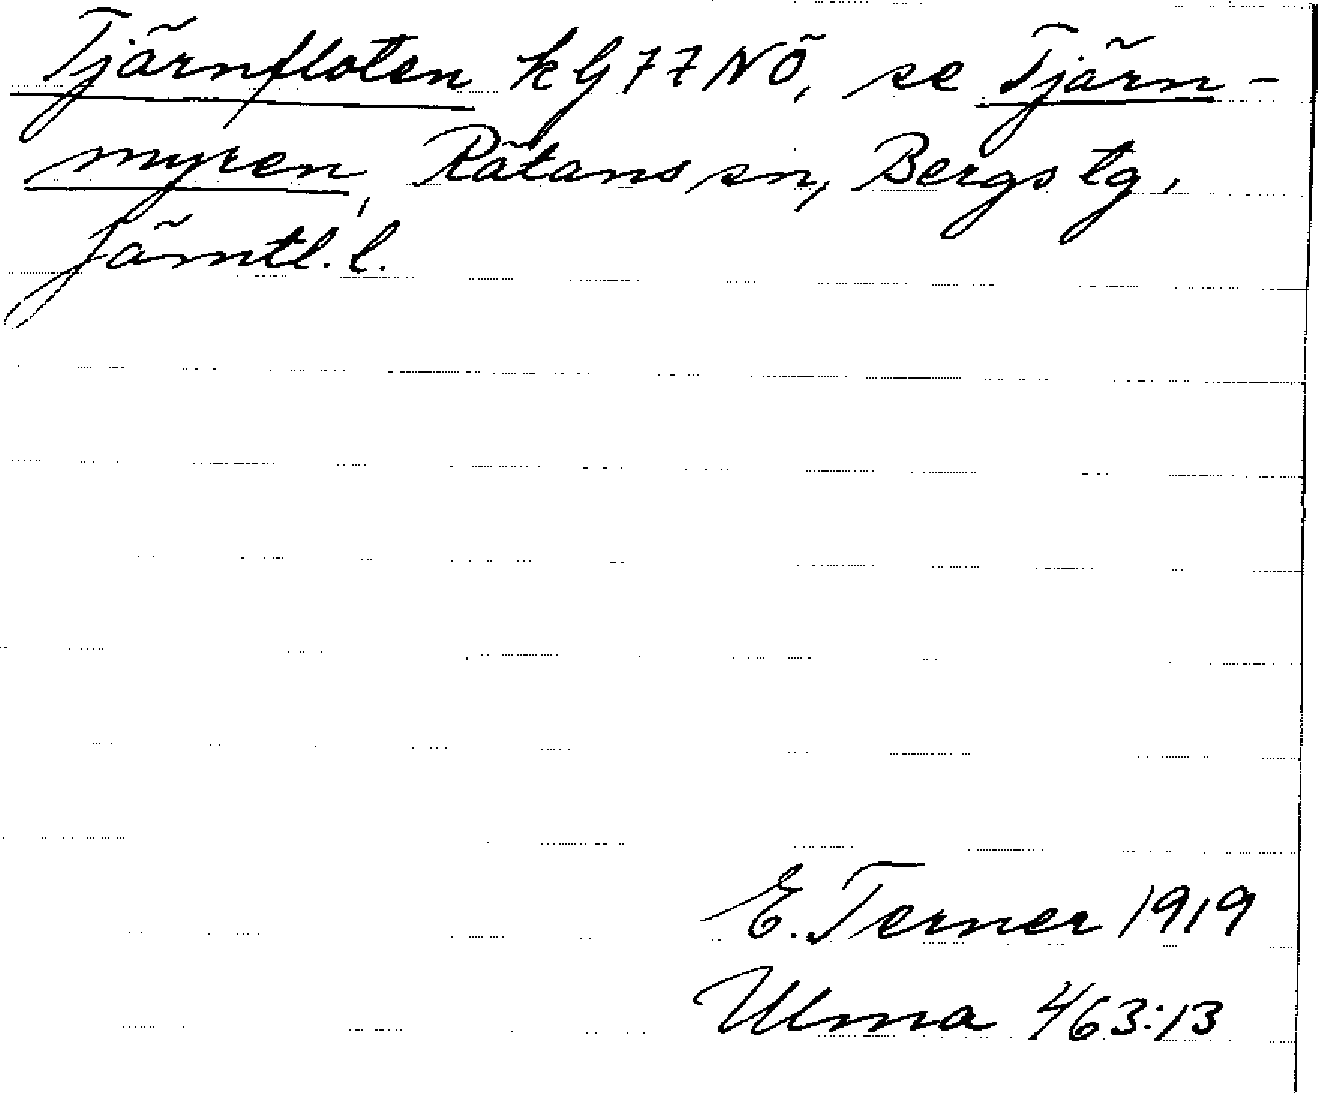 Tjärnfloten kG 77 NÖ, se Tjärn-
myren, Rätans sn, Bergs tg,
Jämtl. l.
E. Terner 1919
Ulma 463:13